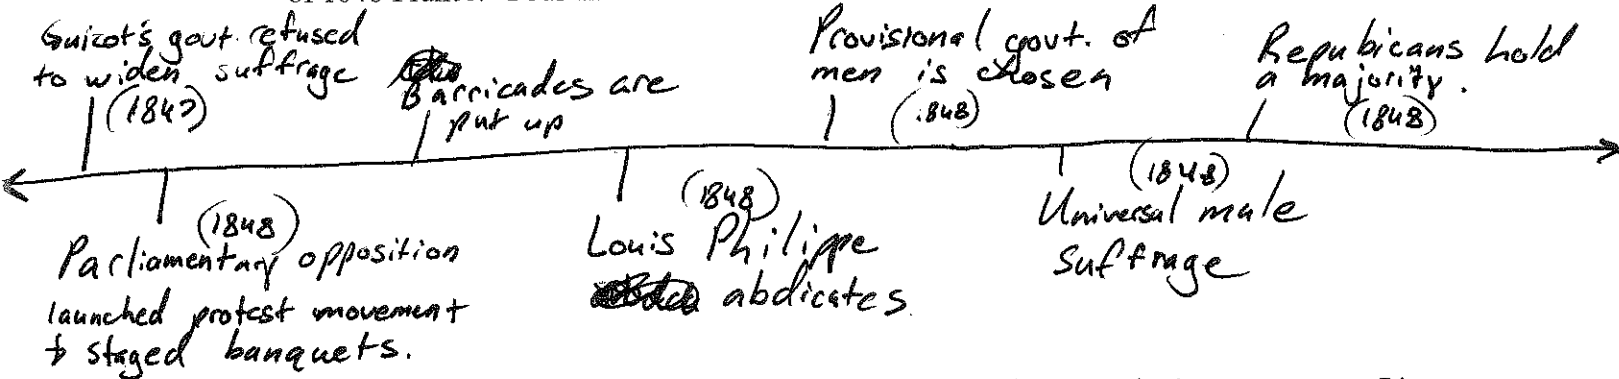 Guizot's govt. refused
to widen suffrage
(1847)
Barricades are
put up
Provisional govt. of
men is chosen
(1848)
Repubicans hold
a majority.
(1848)
(1848)
Parliamentary opposition
launched protest movement
& staged banquets.
(1848)
Louis Philippe
abdicates
(1848)
Universal male
suffrage